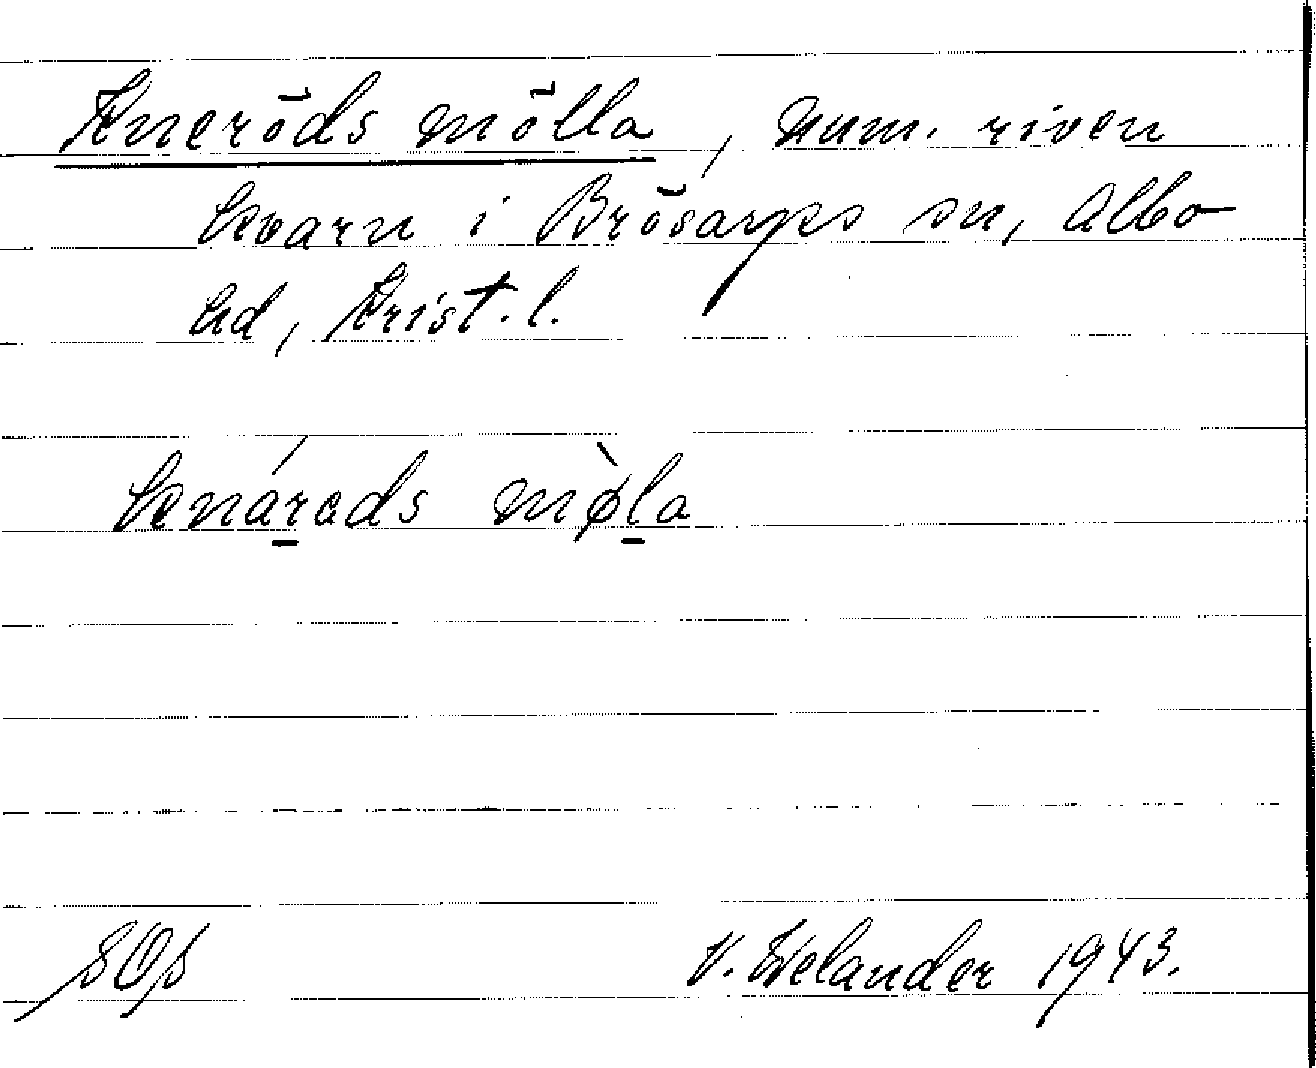 Kneröds mölla, num. riven
kvarn i Brösarps sn, Albo
hd, Krist. l.
kenárads mø̀la
V. Welander 1943.